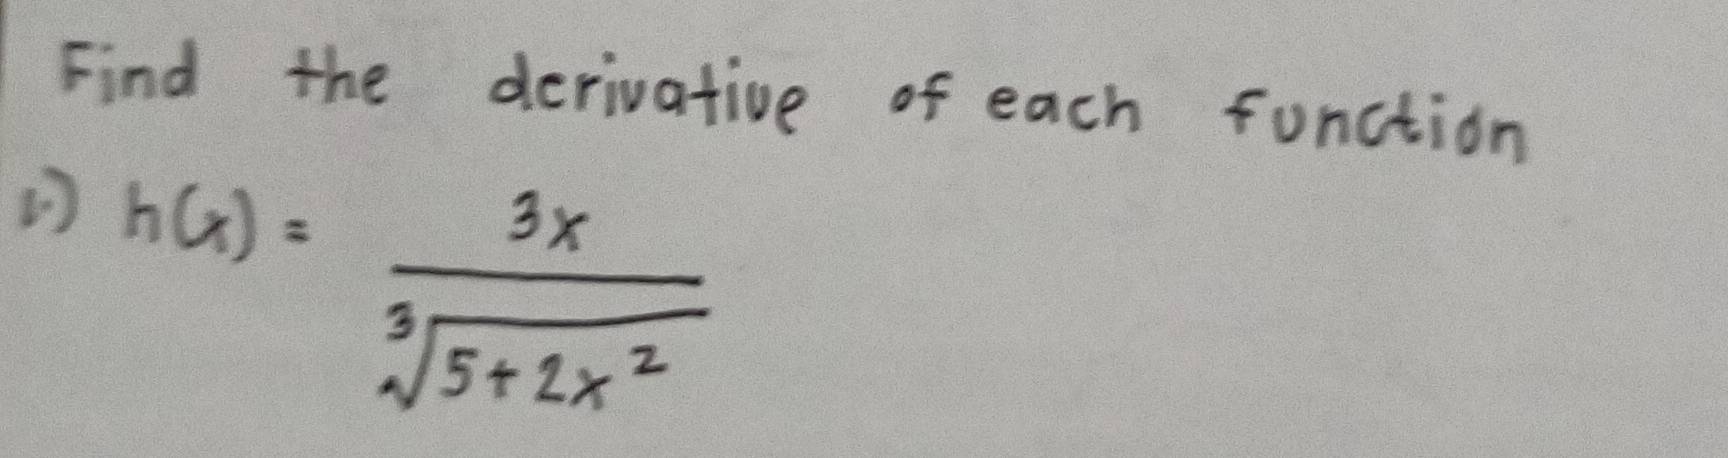 Find the derivative of each function
1.) h(x) = 3x
∛5+2x²